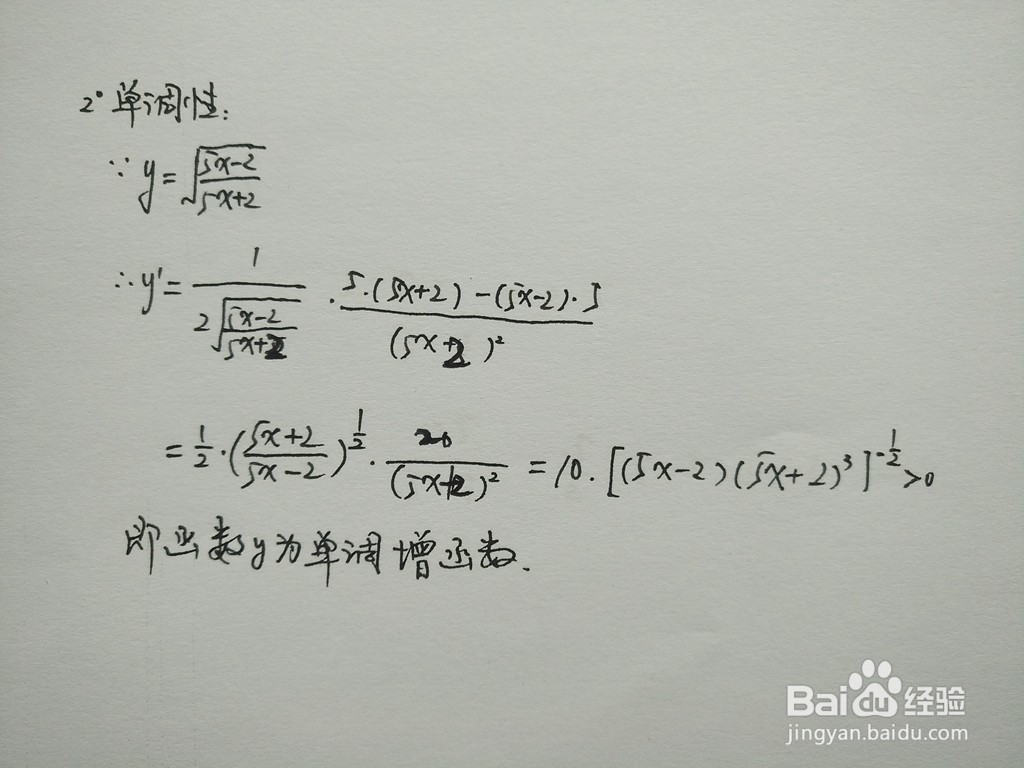 2° 单调性:
∵ y = √((5x-2)/(5x+2))
∴ y' = 1/(2√((5x-2)/(5x+2))) · (5·(5x+2)-(5x-2)·5)/(5x+2)²
= 1/2·((5x+2)/(5x-2))^(1/2) · 20/(5x+2)² = 10·[(5x-2)(5x+2)³]^(-1/2) >0
即函数y为单调增函数.
Baidu经验
jingyan.baidu.com